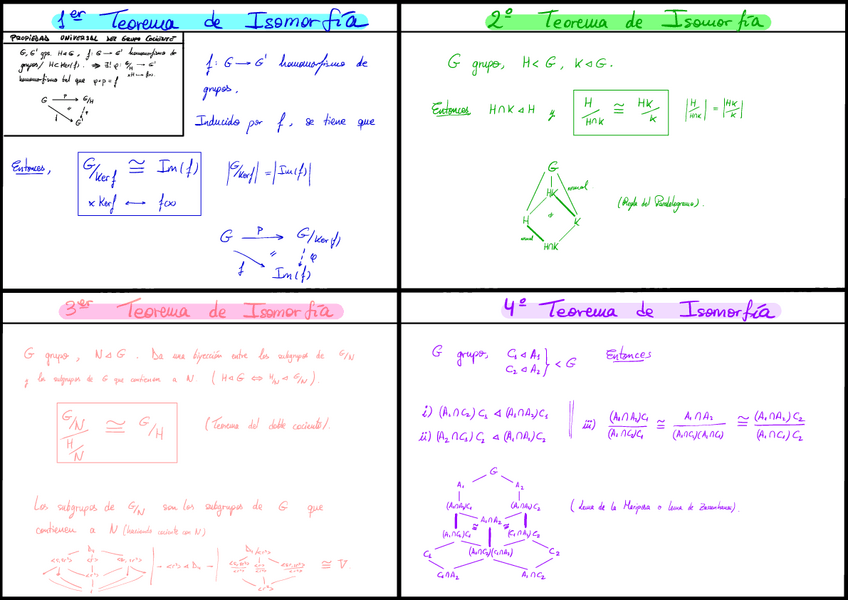 1er Teorema de Isomorfía
PROPIEDAD UNIVERSAL DEL GRUPO COCIENTE
G, G' grps, H◁G, f: G → G' homomorfismo de
grupos / H<Ker(f). ⇒ ∃! φ: G/H → G'
homomorfismo tal que φ∘p = f
G p G/H
f G' φ
f: G → G' homomorfismo de
grupos.
Inducido por f, se tiene que
Entonces, G/Kerf ≅ Im(f) |G/Kerf| = |Im(f)|
x Kerf ↔ f(x)
G p G/Ker(f)
f Im(f) φ
2º Teorema de Isomorfía
G grupo, H<G, K◁G.
Entonces H∩K◁H y H/H∩K ≅ HK/K |H/H∩K| = |HK/K|
G
normal
HK
H K
normal
H∩K
(Regla del Paralelogramo).
3er Teorema de Isomorfía
G grupo, N◁G. Da una biyección entre los subgrupos de G/N
y los subgrupos de G que contienen a N. (H◁G ⇔ H/N ◁ G/N).
G/N / H/N ≅ G/H (Teorema del doble cociente).
Los subgrupos de G/N son los subgrupos de G que
contienen a N (haciendo cociente con N)
≅ V
4º Teorema de Isomorfía
G grupo, C₁◁A₁ C₂◁A₂ } < G Entonces
i) (A₁∩C₂)C₁ ◁ (A₁∩A₂)C₁
ii) (A₂∩C₁)C₂ ◁ (A₁∩A₂)C₂
iii) (A₁∩A₂)C₁/(A₁∩C₂)C₁ ≅ A₁∩A₂/(A₁∩C₂)(A₂∩C₁) ≅ (A₁∩A₂)C₂/(A₂∩C₁)C₂
G
A₁ A₂
(A₁∩A₂)C₁ (A₁∩A₂)C₂
A₁∩A₂
(A₁∩C₂)C₁ (C₁∩A₂)C₂
C₁ (A₁∩C₂)(C₁∩A₂) C₂
C₁∩A₂ A₁∩C₂
(Lema de la Mariposa o Lema de Zassenhaus).